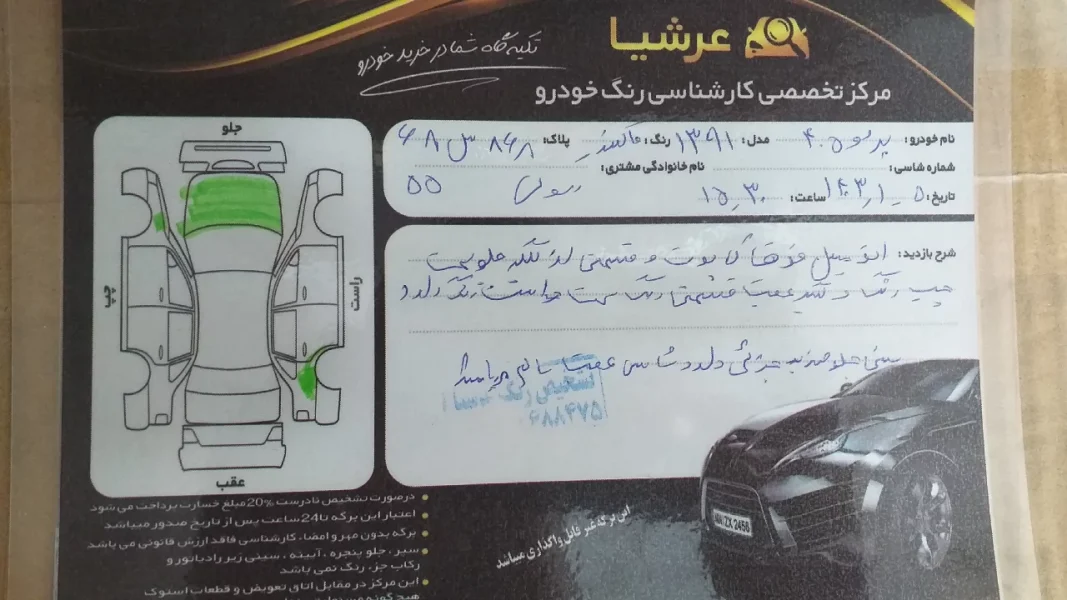 عرشیا
تکیه گاه شما در خرید خودرو
مرکز تخصصی کارشناسی رنگ خودرو
نام خودرو: پژو ۴۰۵ مدل: ۱۳۹۱ رنگ: پلاک: ۶۸ س ۸۶۸
شماره شاسی: نام خانوادگی مشتری:
تاریخ: ۱۴۰۳٫۱٫۵ ساعت: ۱۵٫۳۰ ۵۵
جلو
چپ
راست
عقب
شرح بازدید: اتومبیل فوق کاپوت و قسمتی از گلگیر جلو سمت
چپ رنگ و گلگیر عقب قسمتی رنگ سمت راست رنگ دارد
سینی جلو ضربه جزئی دارد شاسی عقب سالم میباشد
تشخیص رنگ
۶۸۸۴۷۵
درصورت تشخیص نادرست 20% مبلغ خسارت پرداخت می شود
اعتبار این برگه تا 24 ساعت پس از تاریخ صدور میباشد
برگه بدون مهر و امضاء کارشناسی فاقد ارزش قانونی می باشد
سپر ، جلو پنجره ، آیینه ، سینی زیر رادیاتور و
رکاب جزء رنگ نمی باشد
این مرکز در مقابل اتاق تعویض و قطعات استوک
این برگه غیر قابل واگذاری میباشد